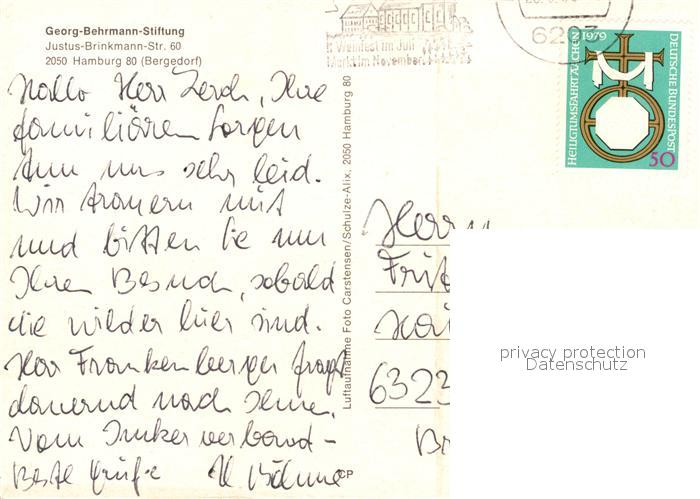 Georg-Behrmann-Stiftung
Justus-Brinkmann-Str. 60
2050 Hamburg 80 (Bergedorf)
Hallo Herr Lerch, Ihre
familiären Sorgen
tun uns sehr leid.
Wir trauern mit
und bitten Sie um
Ihren Besuch, sobald
die wieder hier sind.
Herr Frankenberger fragt
dauernd nach Ihnen.
Vom Imkerverband –
Beste Grüße H. Böhme
Luftaufnahme Foto Carstensen/Schulze-Alix, 2050 Hamburg 80
CP
Weinfest im Juli
Markt im November
6203
HEILIGTUMSFAHRT AACHEN 1979
DEUTSCHE BUNDESPOST
50
Herrn
Frit
6323
privacy protection
Datenschutz